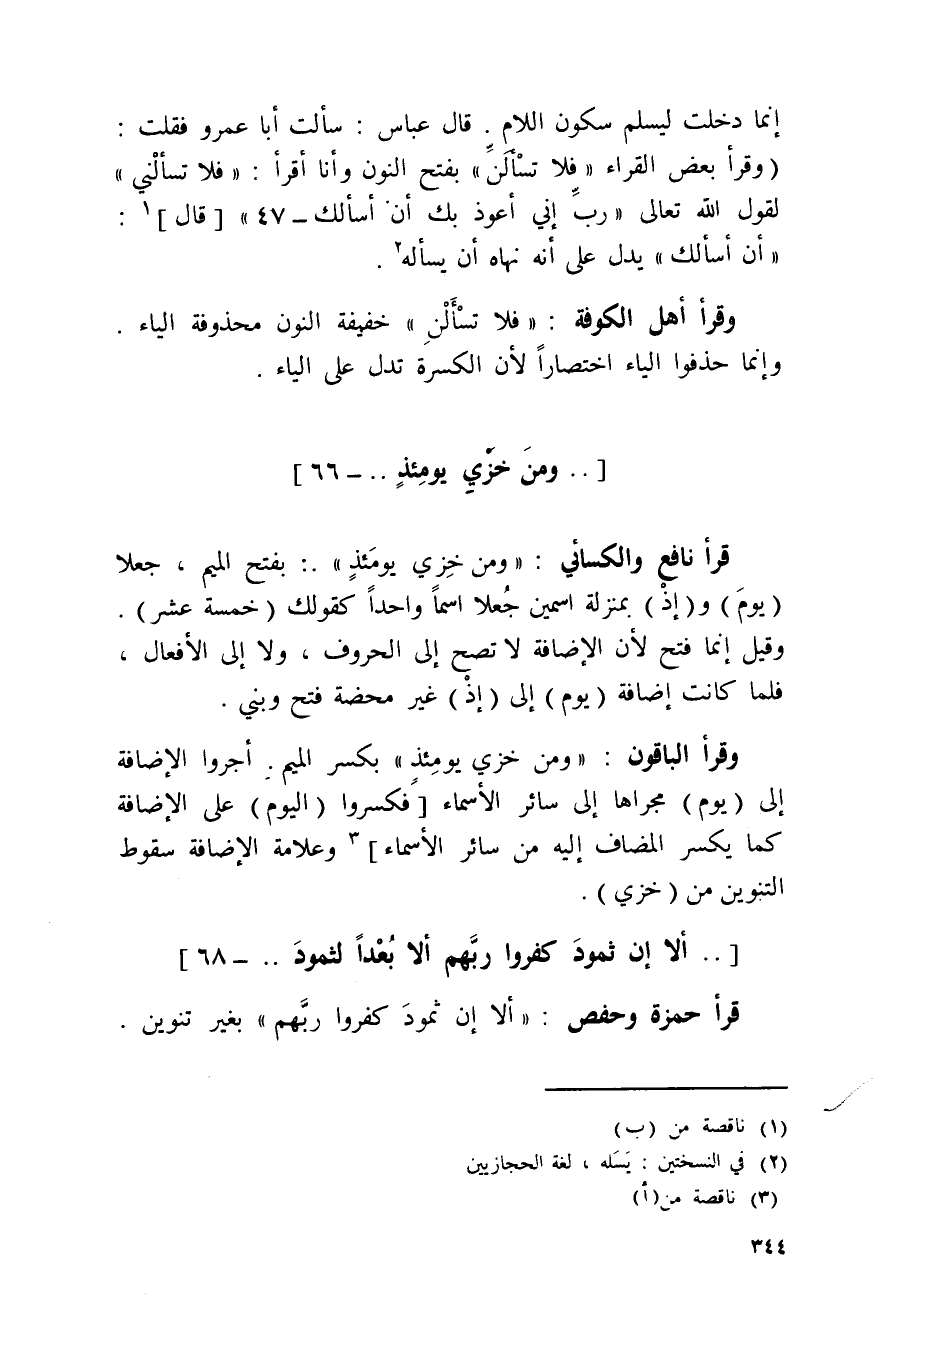 إنما دخلت ليسلم سكون اللام . قال عباس : سألت أبا عمرو فقلت :
( وقرأ بعض القراء « فلا تسْألَنِّ » بفتح النون وأنا أقرأ : « فلا تسألْني »
لقول الله تعالى « ربِّ إني أعوذ بك أن أسألك – ٤٧ » [ قال ]١ :
« أن أسألك » يدل على أنه نهاه أن يسأله٢ .
وقرأ أهل الكوفة : « فلا تسْأَلْنِ » خفيفة النون محذوفة الياء .
وإنما حذفوا الياء اختصاراً لأن الكسرة تدل على الياء .
[ . . ومنَ خزْيِ يومِئذٍ . . – ٦٦ ]
قرأ نافع والكسائي : « ومن خِزي يومَئذٍ » .: بفتح الميم ، جعلا
( يومَ ) و( إذْ ) بمنزلة اسمين جُعلا اسماً واحداً كقولك ( خمسة عشر ) .
وقيل إنما فتح لأن الإضافة لا تصح إلى الحروف ، ولا إلى الأفعال ،
فلما كانت إضافة ( يوم ) إلى ( إذْ ) غير محضة فتح وبني .
وقرأ الباقون : « ومن خزي يومِئذٍ » بكسر الميم . أجروا الإضافة
إلى ( يوم ) مجراها إلى سائر الأسماء [ فكسروا ( اليوم ) على الإضافة
كما يكسر المضاف إليه من سائر الأسماء ]٣ وعلامة الإضافة سقوط
التنوين من ( خزي ) .
[ . . ألا إن ثمودَ كفروا ربَّهم ألا بُعْداً لثمودَ . . – ٦٨ ]
قرأ حمزة وحفص : « ألا إن ثمودَ كفروا ربَّهم » بغير تنوين .
(١) ناقصة من (ب)
(٢) في النسختين : يَسَله ، لغة الحجازيين
(٣) ناقصة من(أ)
٣٤٤